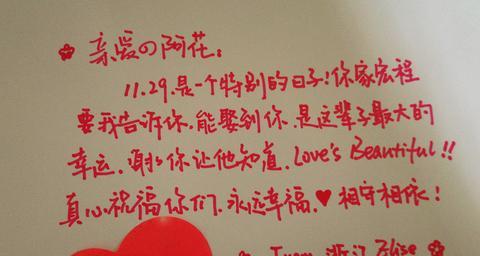 亲爱の阿花：
11.29.是一个特别的日子！你家宏程
要我告诉你，能娶到你，是这辈子最大的
幸运，谢谢你让他知道，Love's Beautiful!!
真心祝福你们，永远幸福，♥相守相依！
From 浙江 Elise